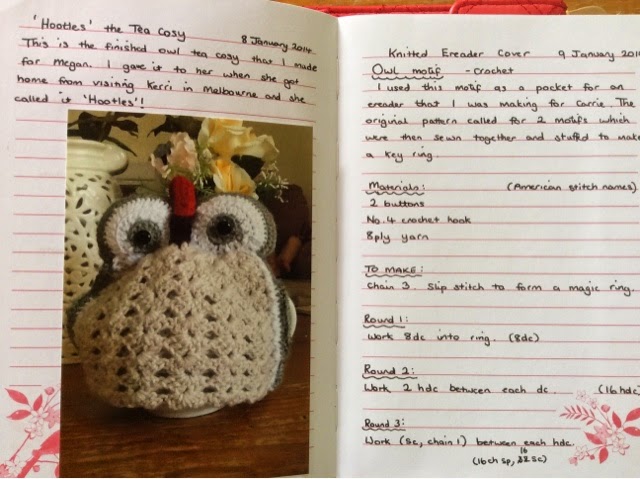 'Hootles' the Tea Cosy
8 January 2014
This is the finished owl tea cosy that I made
for Megan. I gave it to her when she got
home from visiting Kerri in Melbourne and she
called it 'Hootles'!
Knitted Ereader Cover 9 January 201
Owl motif - crochet
I used this motif as a pocket for an
ereader that I was making for Carrie. The
original pattern called for 2 motifs which
were then sewn together and stuffed to make
a key ring.
Materials: (American stitch names)
2 buttons
No. 4 crochet hook
8ply yarn
TO MAKE:
Chain 3. Slip stitch to form a magic ring.
Round 1:
Work 8dc into ring. (8dc)
Round 2:
Work 2 hdc between each dc. (16hdc)
Round 3:
Work (sc, chain 1) between each hdc.
(16ch sp, 16 sc)